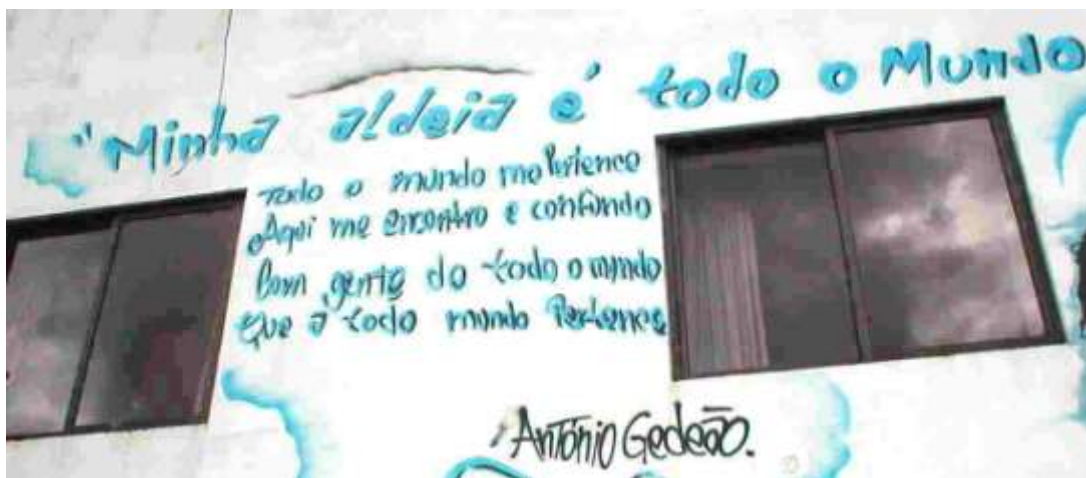 "Minha aldeia é todo o Mundo
Todo o mundo me Pertence
Aqui me encontro e confundo
Com gente do todo o mundo
Que a todo mundo Pertence
António Gedeão.